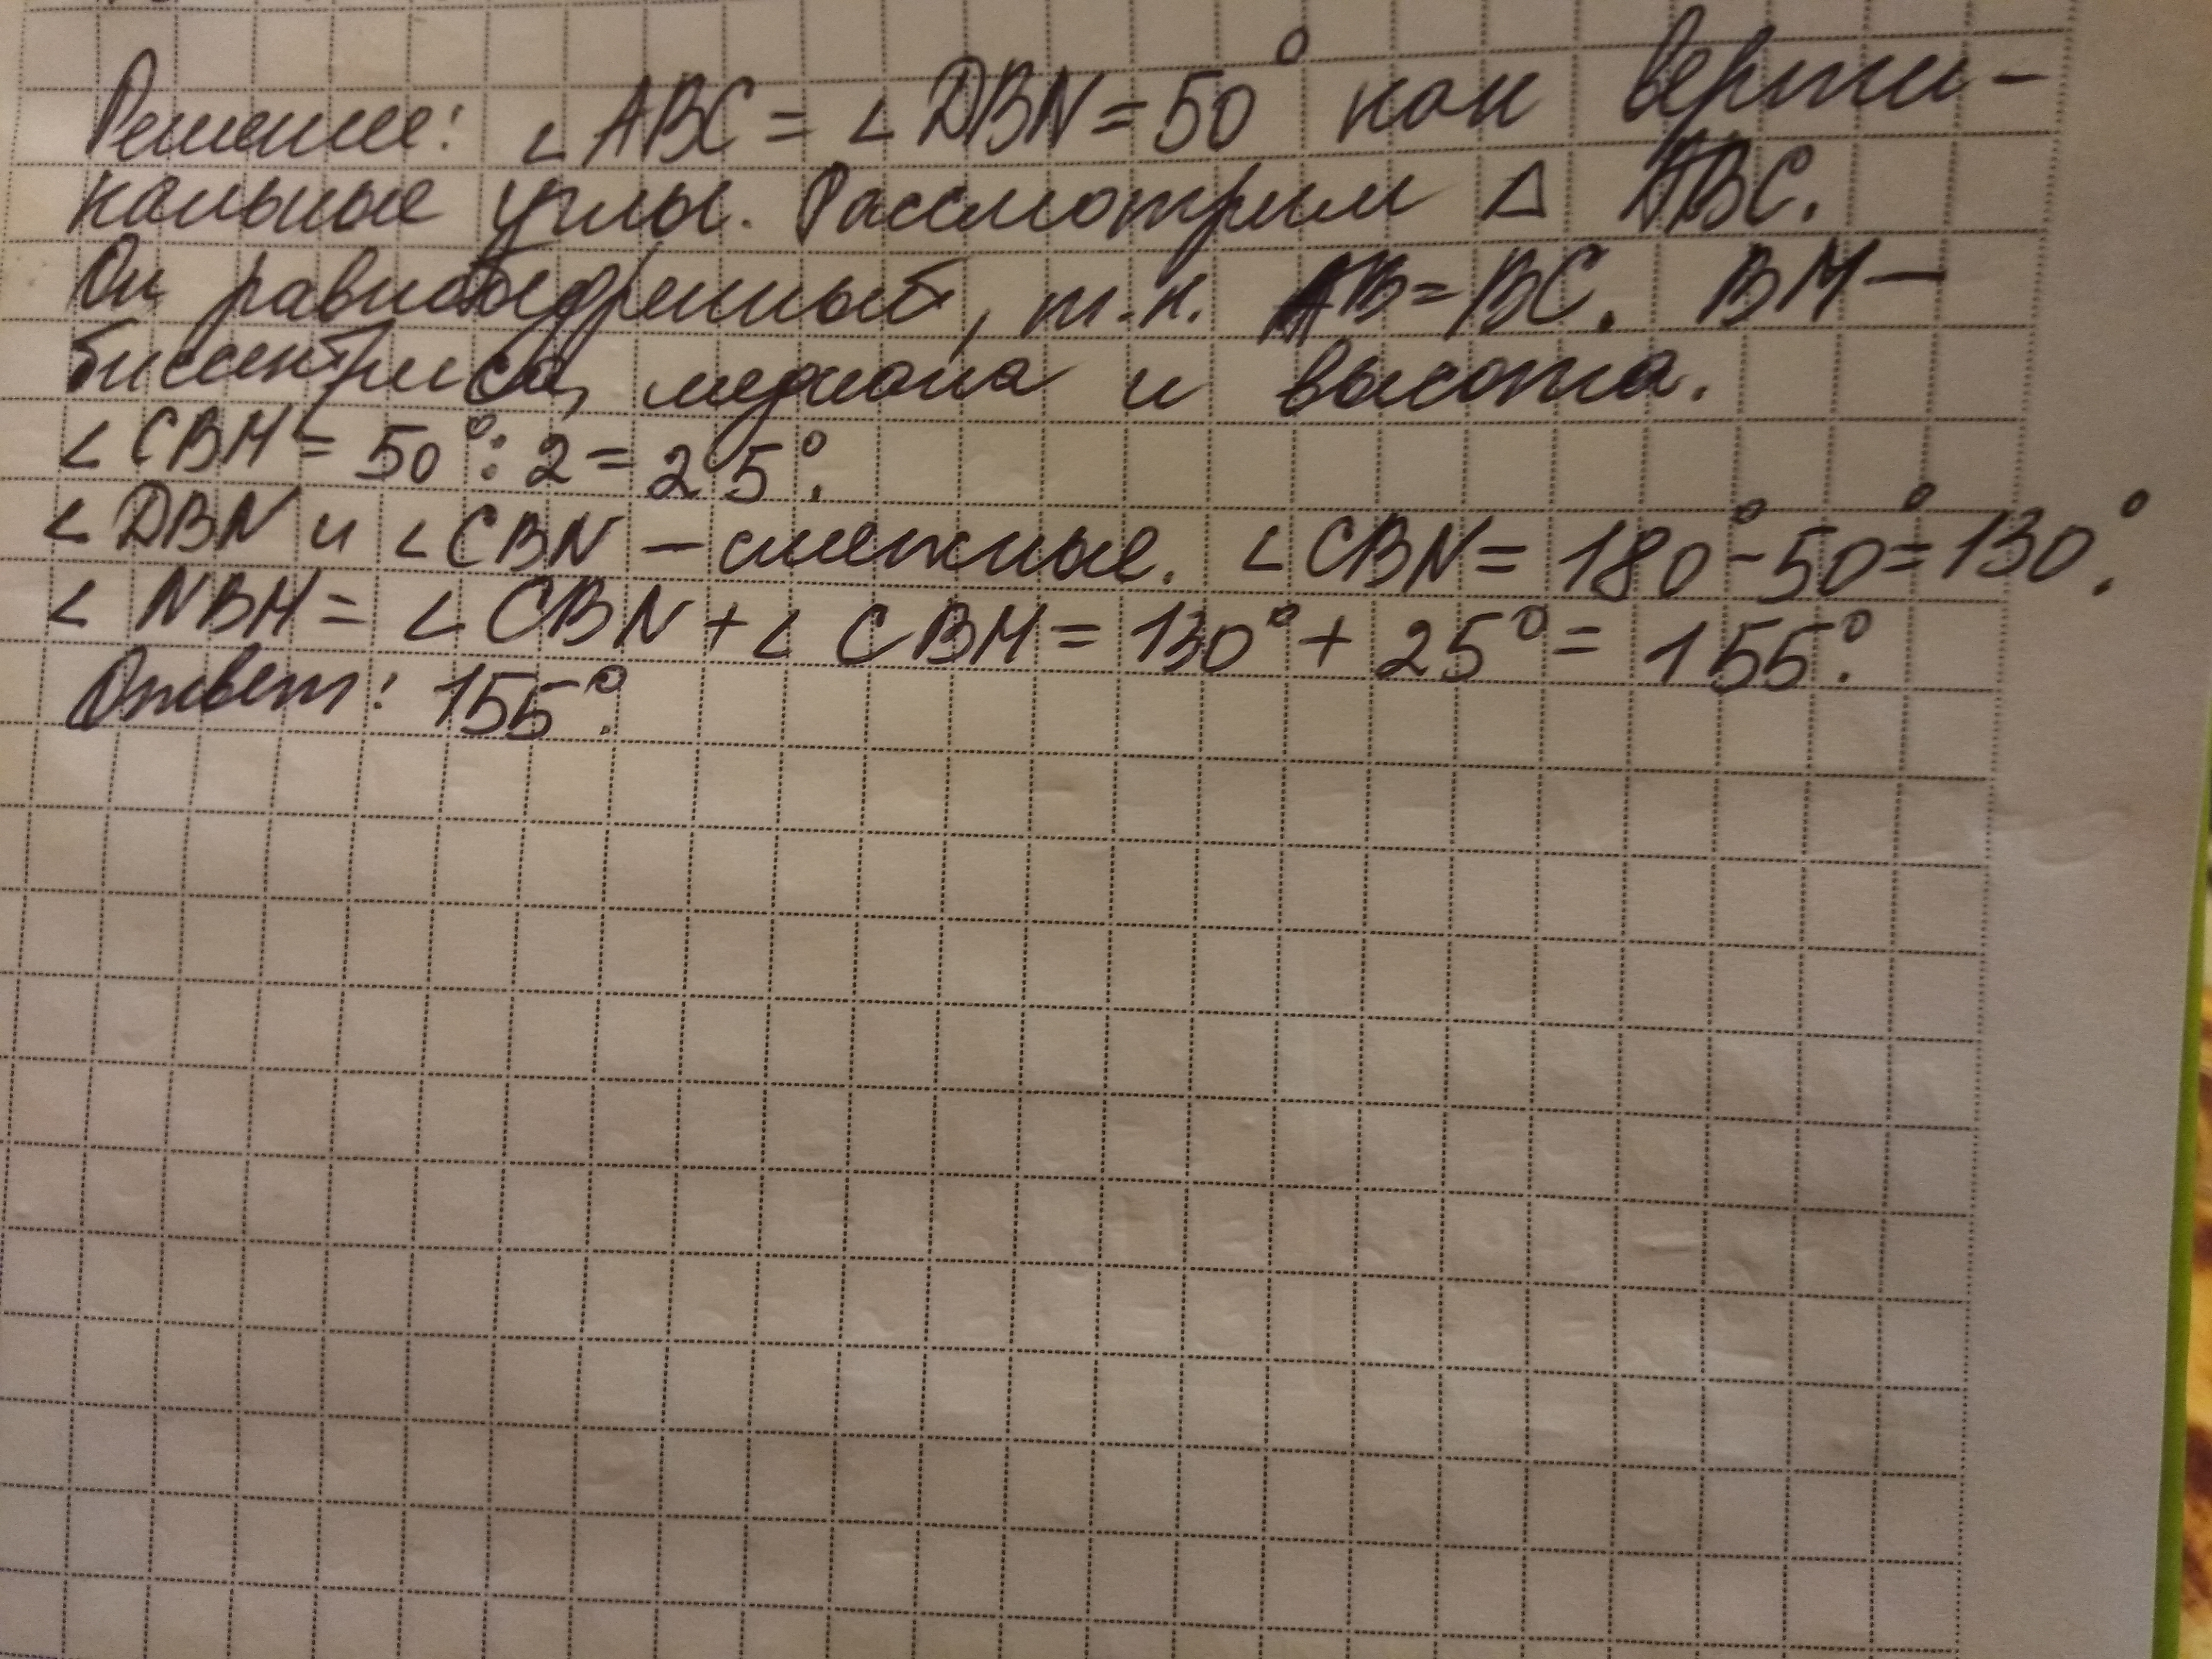 Решение: ∠ABC = ∠DBN = 50° как верти-
кальные углы. Рассмотрим △ ABC.
Он равнобедренный, т.к. AB=BC. BM –
биссектриса, медиана и высота.
∠CBM = 50° : 2 = 25°.
∠DBN и ∠CBN – смежные. ∠CBN = 180° - 50° = 130°.
∠NBM = ∠CBN + ∠CBM = 130° + 25° = 155°.
Ответ: 155°.